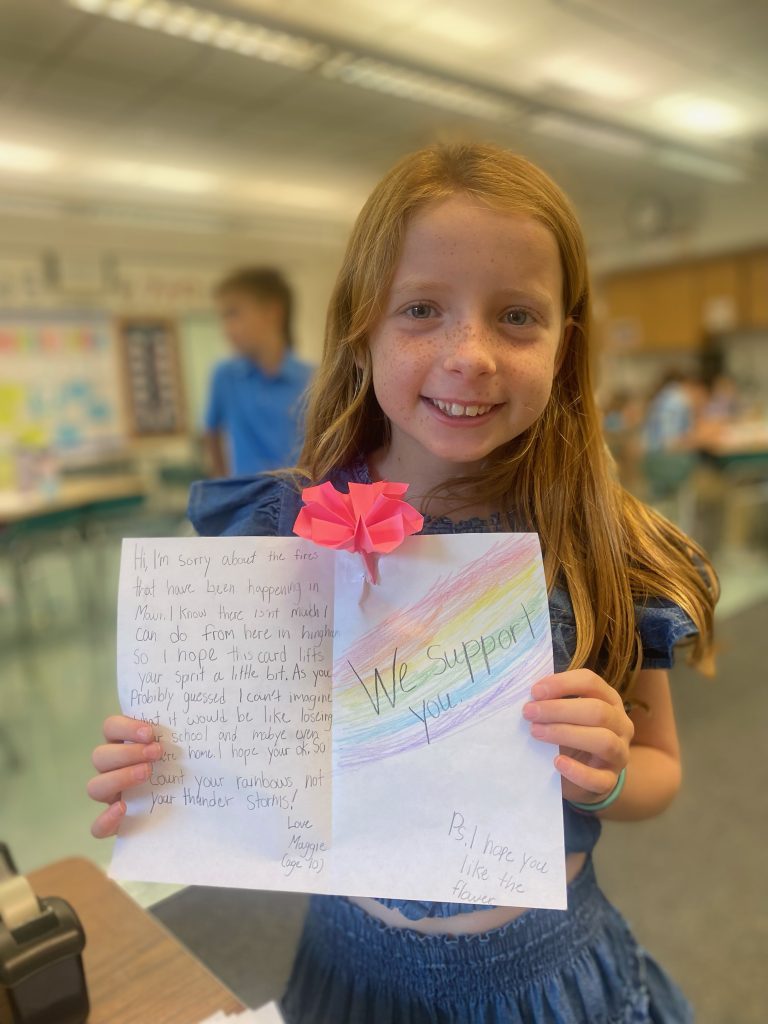 Hi, I'm sorry about the fires
that have been happening in
Maui. I know there isn't much I
can do from here in hingham
So I hope this card lifts
your spirit a little bit. As you
Probibly guessed I can't imagine
what it would be like loseing
school and mabye even
home. I hope your ok. So
Count your rainbows not
your thunder storms!
Love
Maggie
(age 10)
We support
you.
Ps. I hope you
like the
flower